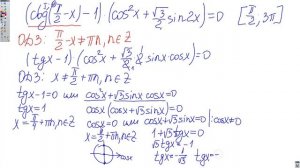 (ctg(π/2-x)-1)(cos²x+√3/2 sin2x)=0 [π/2, 3π]
ОДЗ: π/2-x≠πn, n∈Z
(tgx-1)(cos²x+√3/2·2 sinx·cosx)=0
ОДЗ: x≠π/2+πn, n∈Z
tgx-1=0 или cos²x+√3sinx cosx=0
tgx=1 cosx(cosx+√3sinx)=0
x=π/4+πn, n∈Z cosx=0 или cosx+√3sinx=0 |:cosx≠0
x=π/2+πn, n∈Z 1+√3tgx=0
√3tgx=-1
tgx=-1/√3 tgx=-